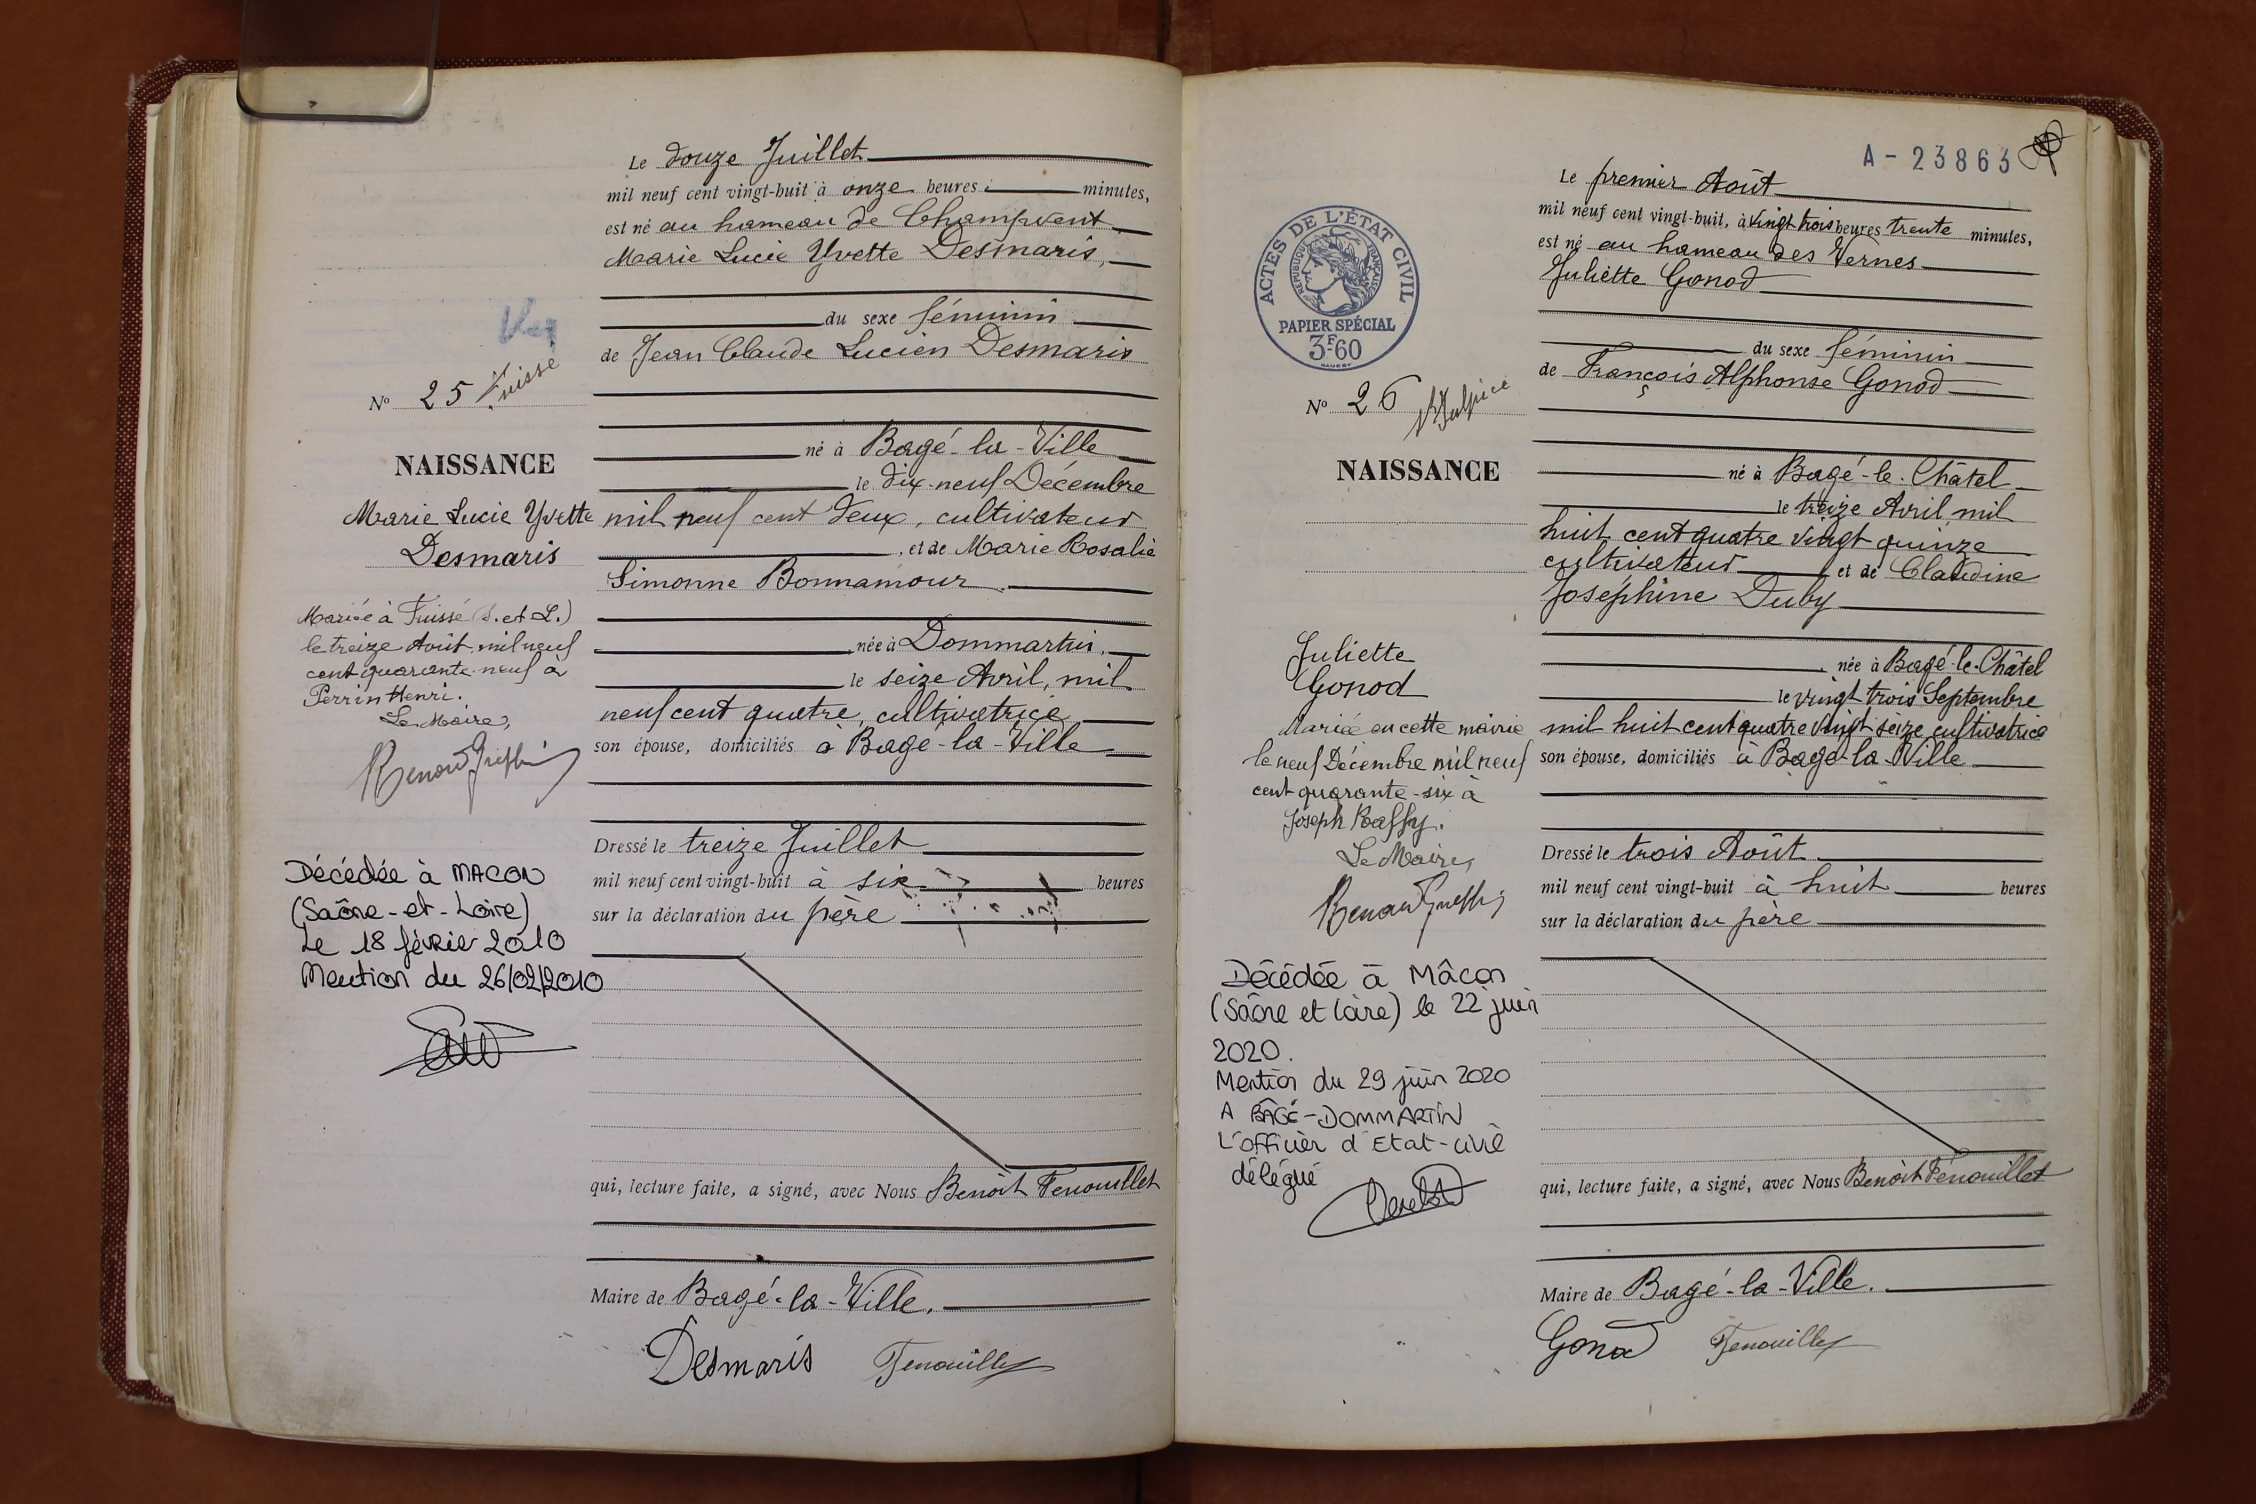 Le douze Juillet
mil neuf cent vingt-huit à onze heures minutes,
est né au hameau de Champvent
Marie Lucie Yvette Desmaris,
du sexe féminin
de Jean Claude Lucien Desmaris
né à Bagé-la-Ville
le dix-neuf Décembre
mil neuf cent deux, cultivateur
, et de Marie Rosalie
Simonne Bonnamour
née à Dommartin,
le seize Avril, mil
neuf cent quatre, cultivatrice
son épouse, domiciliés à Bagé-la-Ville
Dressé le treize Juillet
mil neuf cent vingt-huit à six heures
sur la déclaration du père
qui, lecture faite, a signé, avec Nous Benoît Fenouillet
Maire de Bagé-la-Ville.
Desmaris Fenouillet
No 25 Fuissé
NAISSANCE
Marie Lucie Yvette
Desmaris
Mariée à Fuissé (S. et L.)
le treize Août mil neuf
cent quarante-neuf à
Perrin Henri.
Le Maire,
Décédée à MACON
(Saône-et-Loire)
Le 18 février 2010
Mention du 26/02/2010
A-23863
Le premier Août
mil neuf cent vingt-huit, à vingt trois heures trente minutes,
est né au hameau des Vernes
Juliette Gonod
du sexe féminin
de François Alphonse Gonod
né à Bagé-le-Châtel
le treize Avril, mil
huit cent quatre vingt quinze
cultivateur et de Claudine
Joséphine Duby
née à Bagé-le-Châtel
le vingt trois Septembre
mil huit cent quatre vingt seize cultivatrice
son épouse, domiciliés à Bagé-la-Ville
Dressé le trois Août
mil neuf cent vingt-huit à huit heures
sur la déclaration du père
qui, lecture faite, a signé, avec Nous Benoît Fenouillet
Maire de Bagé-la-Ville.
Gonod Fenouillet
ACTES DE L'ÉTAT CIVIL
RÉPUBLIQUE FRANÇAISE
PAPIER SPÉCIAL
3F.60
No 26 St Sulpice
NAISSANCE
Juliette
Gonod
Mariée en cette mairie
le neuf Décembre mil neuf
cent quarante-six à
Joseph Raffy.
Le Maire,
Décédée à Mâcon
(Saône et Loire) le 22 juin
2020.
Mention du 29 juin 2020
A BÂGÉ-DOMMARTIN
L'officier d'Etat-civil
délégué